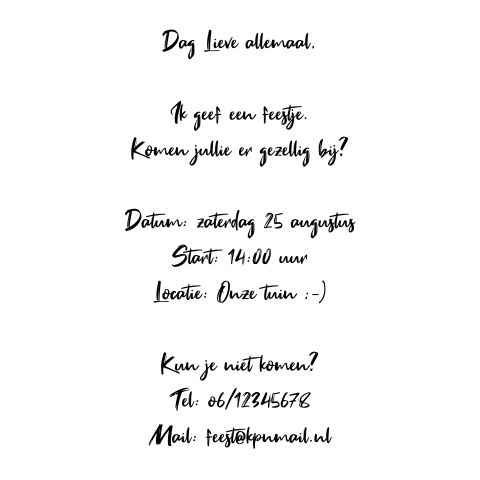 Dag Lieve allemaal,
Ik geef een feestje.
Komen jullie er gezellig bij?
Datum: zaterdag 25 augustus
Start: 14:00 uur
Locatie: Onze tuin ;-)
Kun je niet komen?
Tel: 06/12345678
Mail: feest@kpnmail.nl